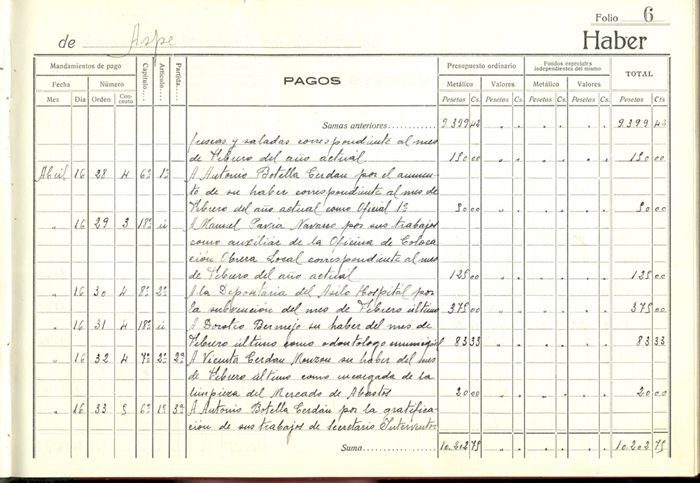 Folio 6
de Aspe
Haber
Mandamientos de pago Capítulo.... Artículo.... Partida.... PAGOS Presupuesto ordinario Fondos especiales independientes del mismo TOTAL
Fecha Número Metálico Valores Metálico Valores
Mes Día Orden Concepto Pesetas Cs. Pesetas Cs. Pesetas Cs. Pesetas Cs. Pesetas Cts
Sumas anteriores 9.399 42 9.399 42
frescas y saladas correspondiente al mes
de Febrero del año actual 150 00 150 00
Abril 16 28 4 6º 1º A Antonio Botella Cerdán por el aumen-
to de su haber correspondiente al mes de
Febrero del año actual como Oficial 1º 50 00 50 00
" 16 29 3 18º ú A Manuel Pavia Navarro por sus trabajos
como auxiliar de la Oficina de Coloca-
ción Obrera Local correspondiente al mes
de Febrero del año actual 125 00 125 00
" 16 30 4 8º 2º A la Depositaria del Asilo Hospital por
la subvención del mes de Febrero último 375 00 375 00
" 16 31 4 18º ú A Doroteo Bermejo su haber del mes de
Febrero último como odontologo municipal 83 33 83 33
" 16 32 4 7º 2º 2º A Vicenta Cerdan Monzou su haber del mes
de Febrero último como encargada de la
limpieza del Mercado de Abastos 20 00 20 00
" 16 33 5 6º 1º 3º A Antonio Botella Cerdán por la gratifica-
ción de sus trabajos de Secretario Interventor
Suma 10.202 75 10.202 75